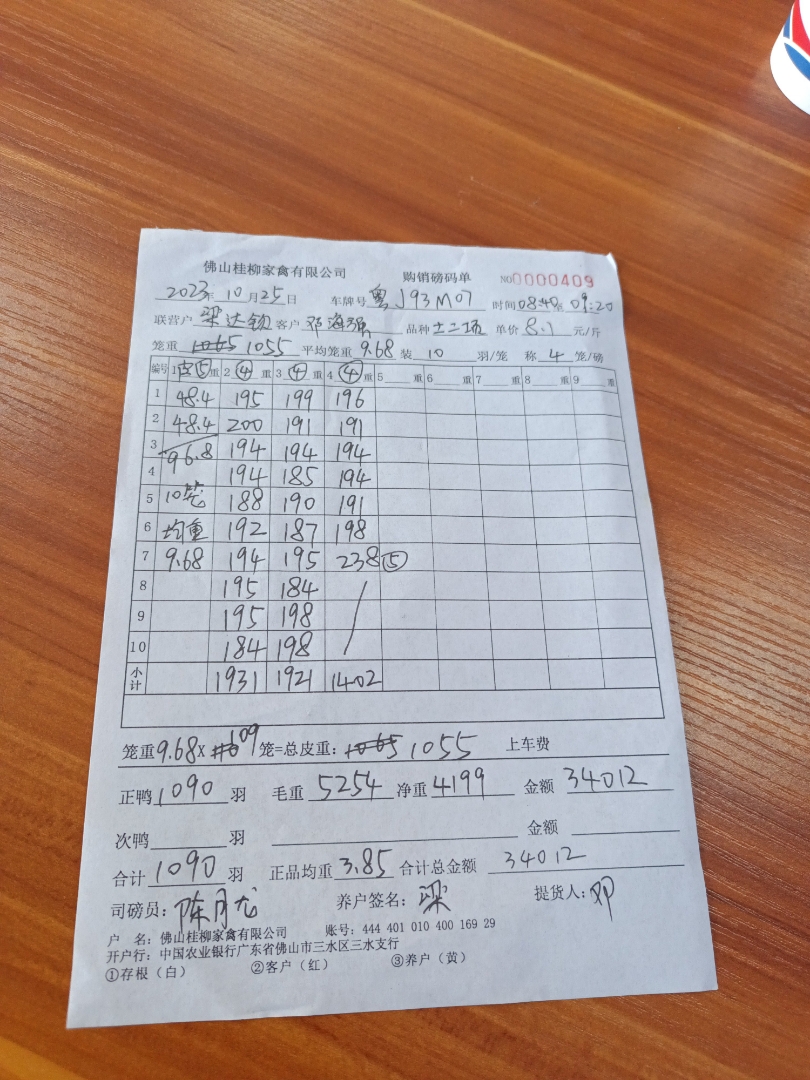 佛山桂柳家禽有限公司 购销磅码单 NO0000409
2023年 10月25日 车牌号 粤J93M07 时间08:40至09:20
联营户 梁达钦 客户 邓海强 品种 土二场 单价 8.1 元/斤
笼重 1065 1055 平均笼重 9.68 装 10 羽/笼 称 4 笼/磅
编号 1皮⑤重 2④重 3④重 4④重 5 重 6 重 7 重 8 重 9 重
1 48.4 195 199 196
2 48.4 200 191 191
3 96.8 194 194 194
4 194 185 194
5 10笼 188 190 191
6 均重 192 187 198
7 9.68 194 195 238⑤
8 195 184 /
9 195 198
10 184 198
小计 1931 1921 1402
笼重9.68X 109 笼=总皮重: 1065 1055 上车费
正鸭 1090 羽 毛重 5254 净重 4199 金额 34012
次鸭 羽 金额
合计 1090 羽 正品均重 3.85 合计总金额 34012
司磅员: 陈月龙 养户签名: 梁 提货人: 邓
户 名: 佛山桂柳家禽有限公司 账号: 444 401 010 400 169 29
开户行: 中国农业银行广东省佛山市三水区三水支行
①存根（白） ②客户（红） ③养户（黄）